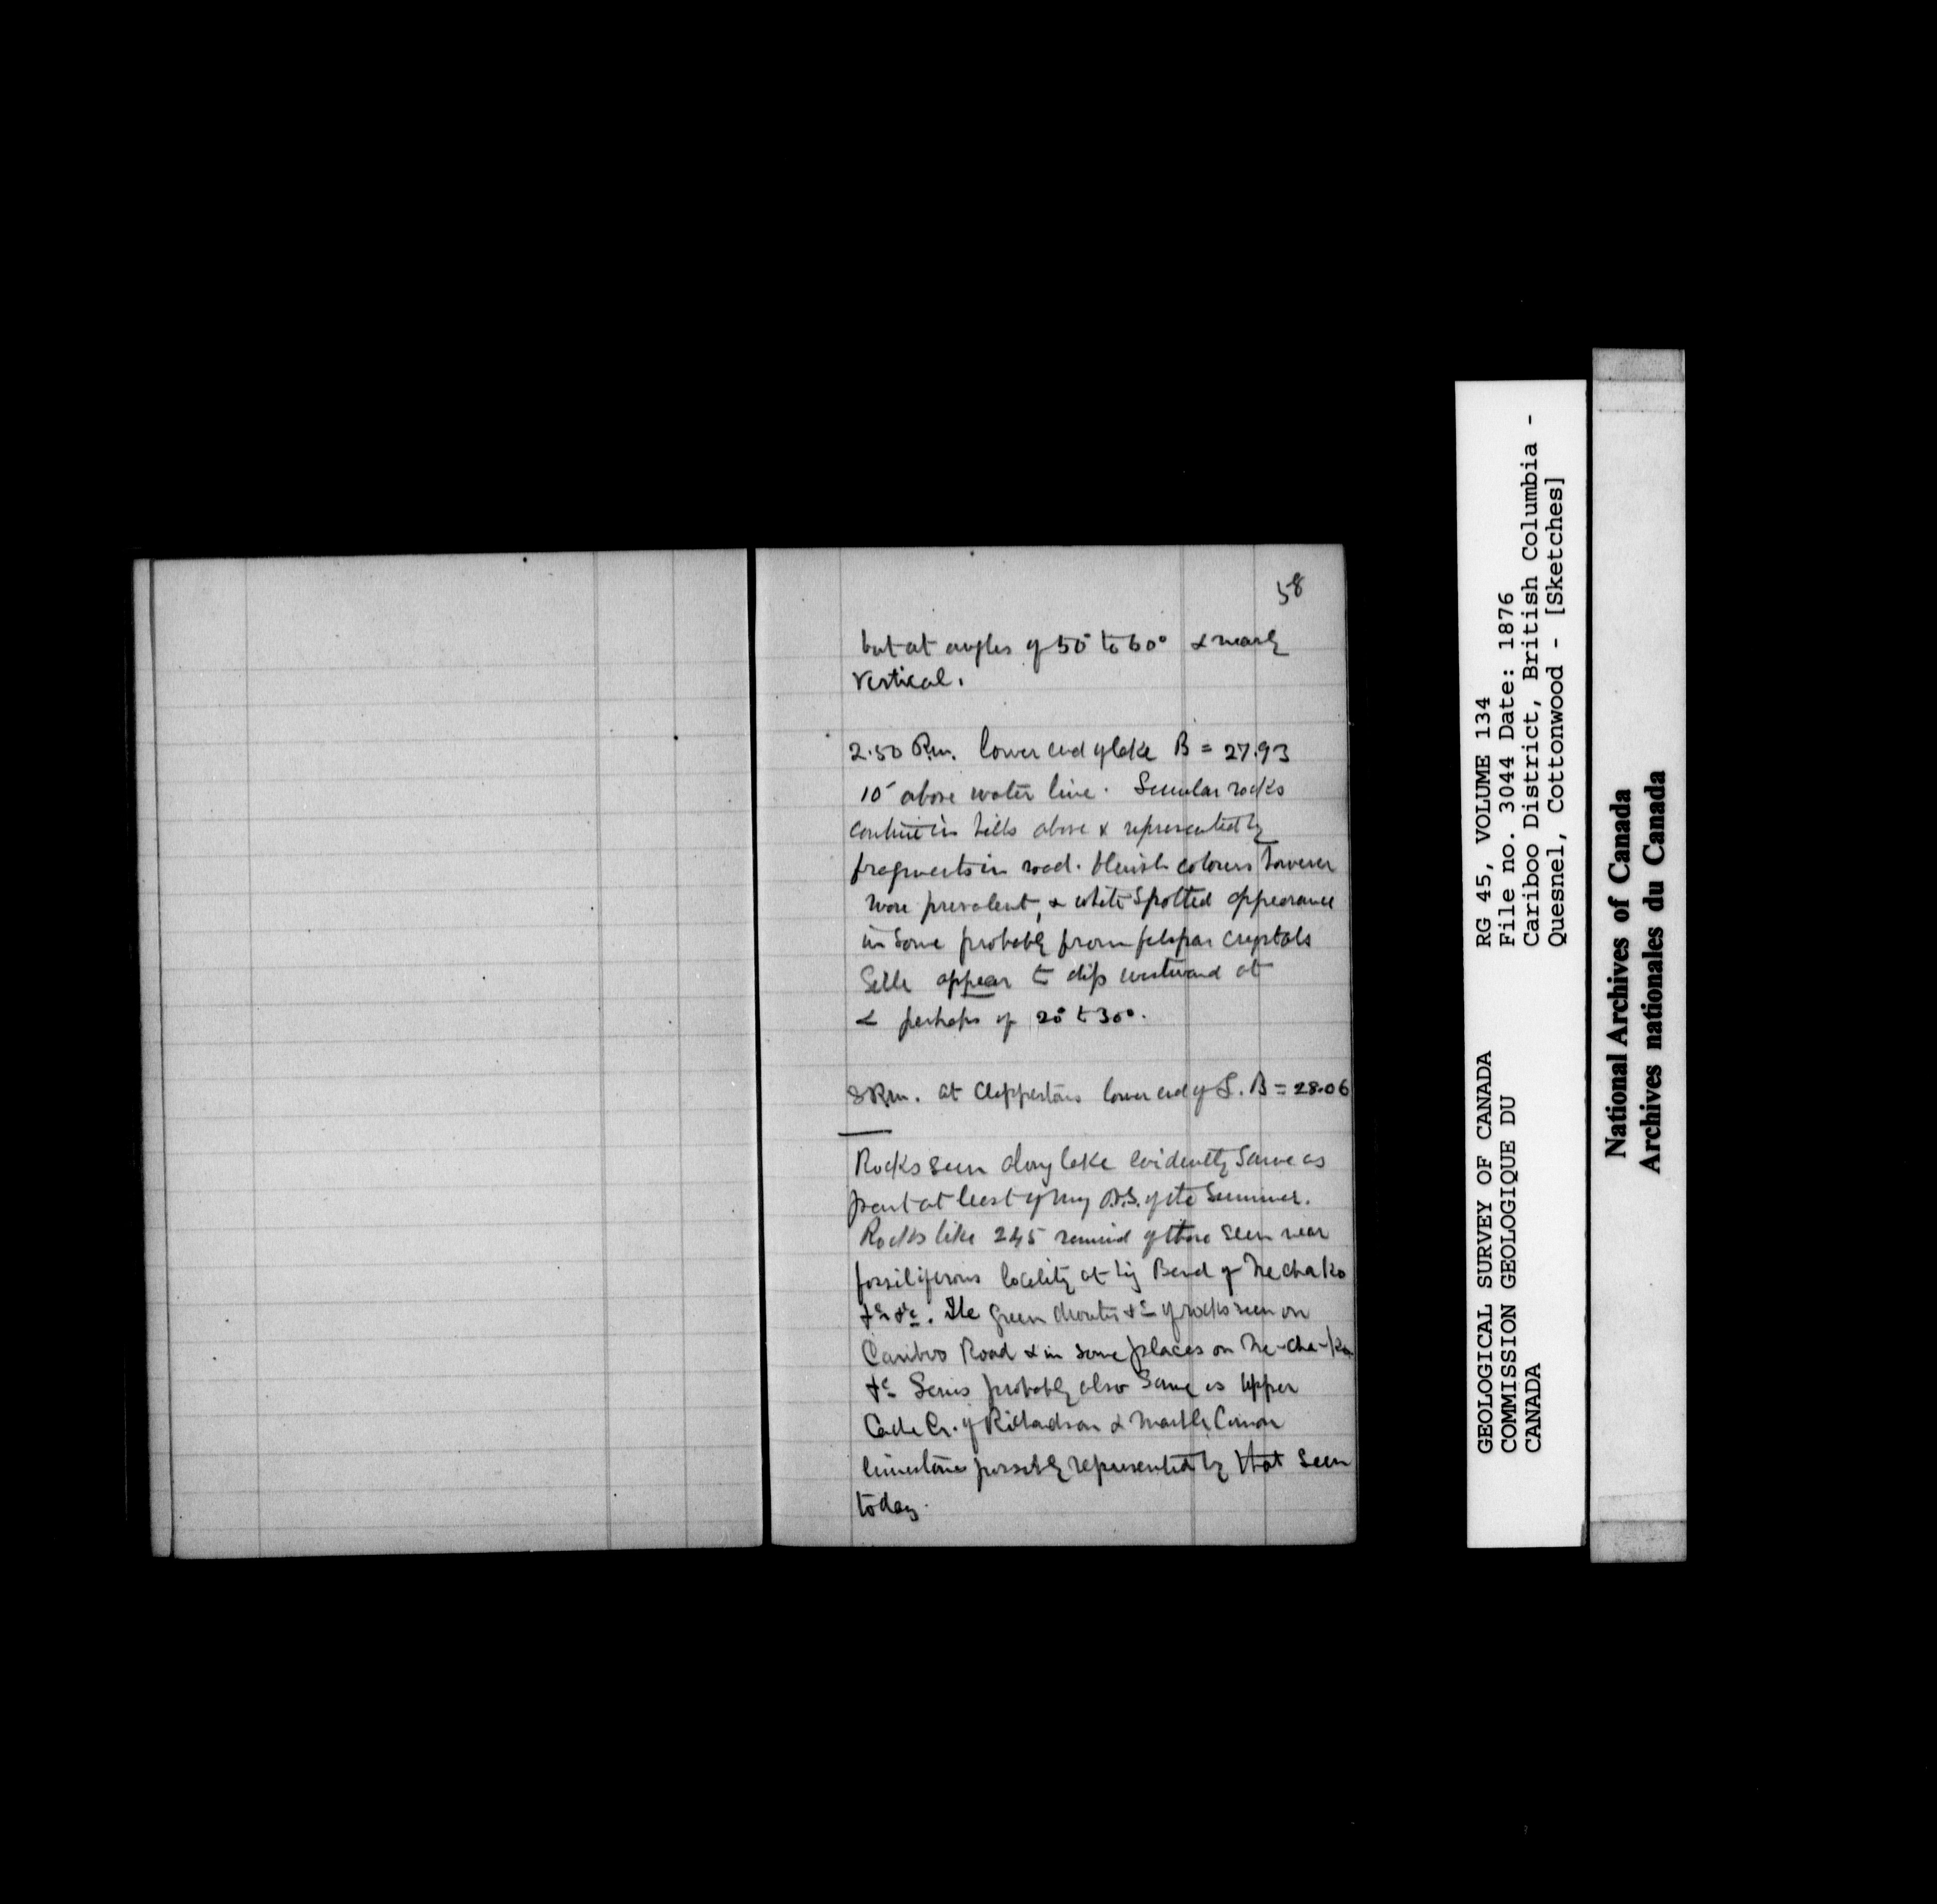 58
but at angles of 50° to 60° & nearly
vertical.
2.50 P.m. lower end of lake B = 27.93
10' above water line. Similar rocks
continue in hills above & represented by
fragments in road. bluish colours however
more prevalent, & white spotted appearance
in some probably from felspar crystals
Still appear to dip westward at
∠ perhaps of 20° to 30°.
8 P.m. at Clapperton's lower end of L. B = 28.06
Rocks seen along lake evidently same as
part at least of my of the Summer.
Rocks like 245 remind of those seen near
fossiliferous locality at big Bend of Nechako
&c &c. The green &c of rocks seen on
Cariboo Road & in some places on Ne-cha-ko
&c Series probably also Same as Upper
Cache Cr. of Richardson & Marble Canon
limestones possibly represented by that seen
today.
GEOLOGICAL SURVEY OF CANADA
COMMISSION GEOLOGIQUE DU
CANADA
RG 45, VOLUME 134
File no. 3044 Date: 1876
Cariboo District, British Columbia -
Quesnel, Cottonwood - [Sketches]
National Archives of Canada
Archives nationales du Canada